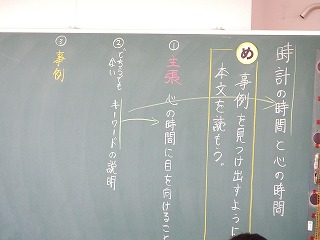 時計の時間と心の時間
め
事例を見つけ出すように
本文を読もう。
① 主張 心の時間に目を向けること
② どちらでもない キーワードの説明
③ 事例